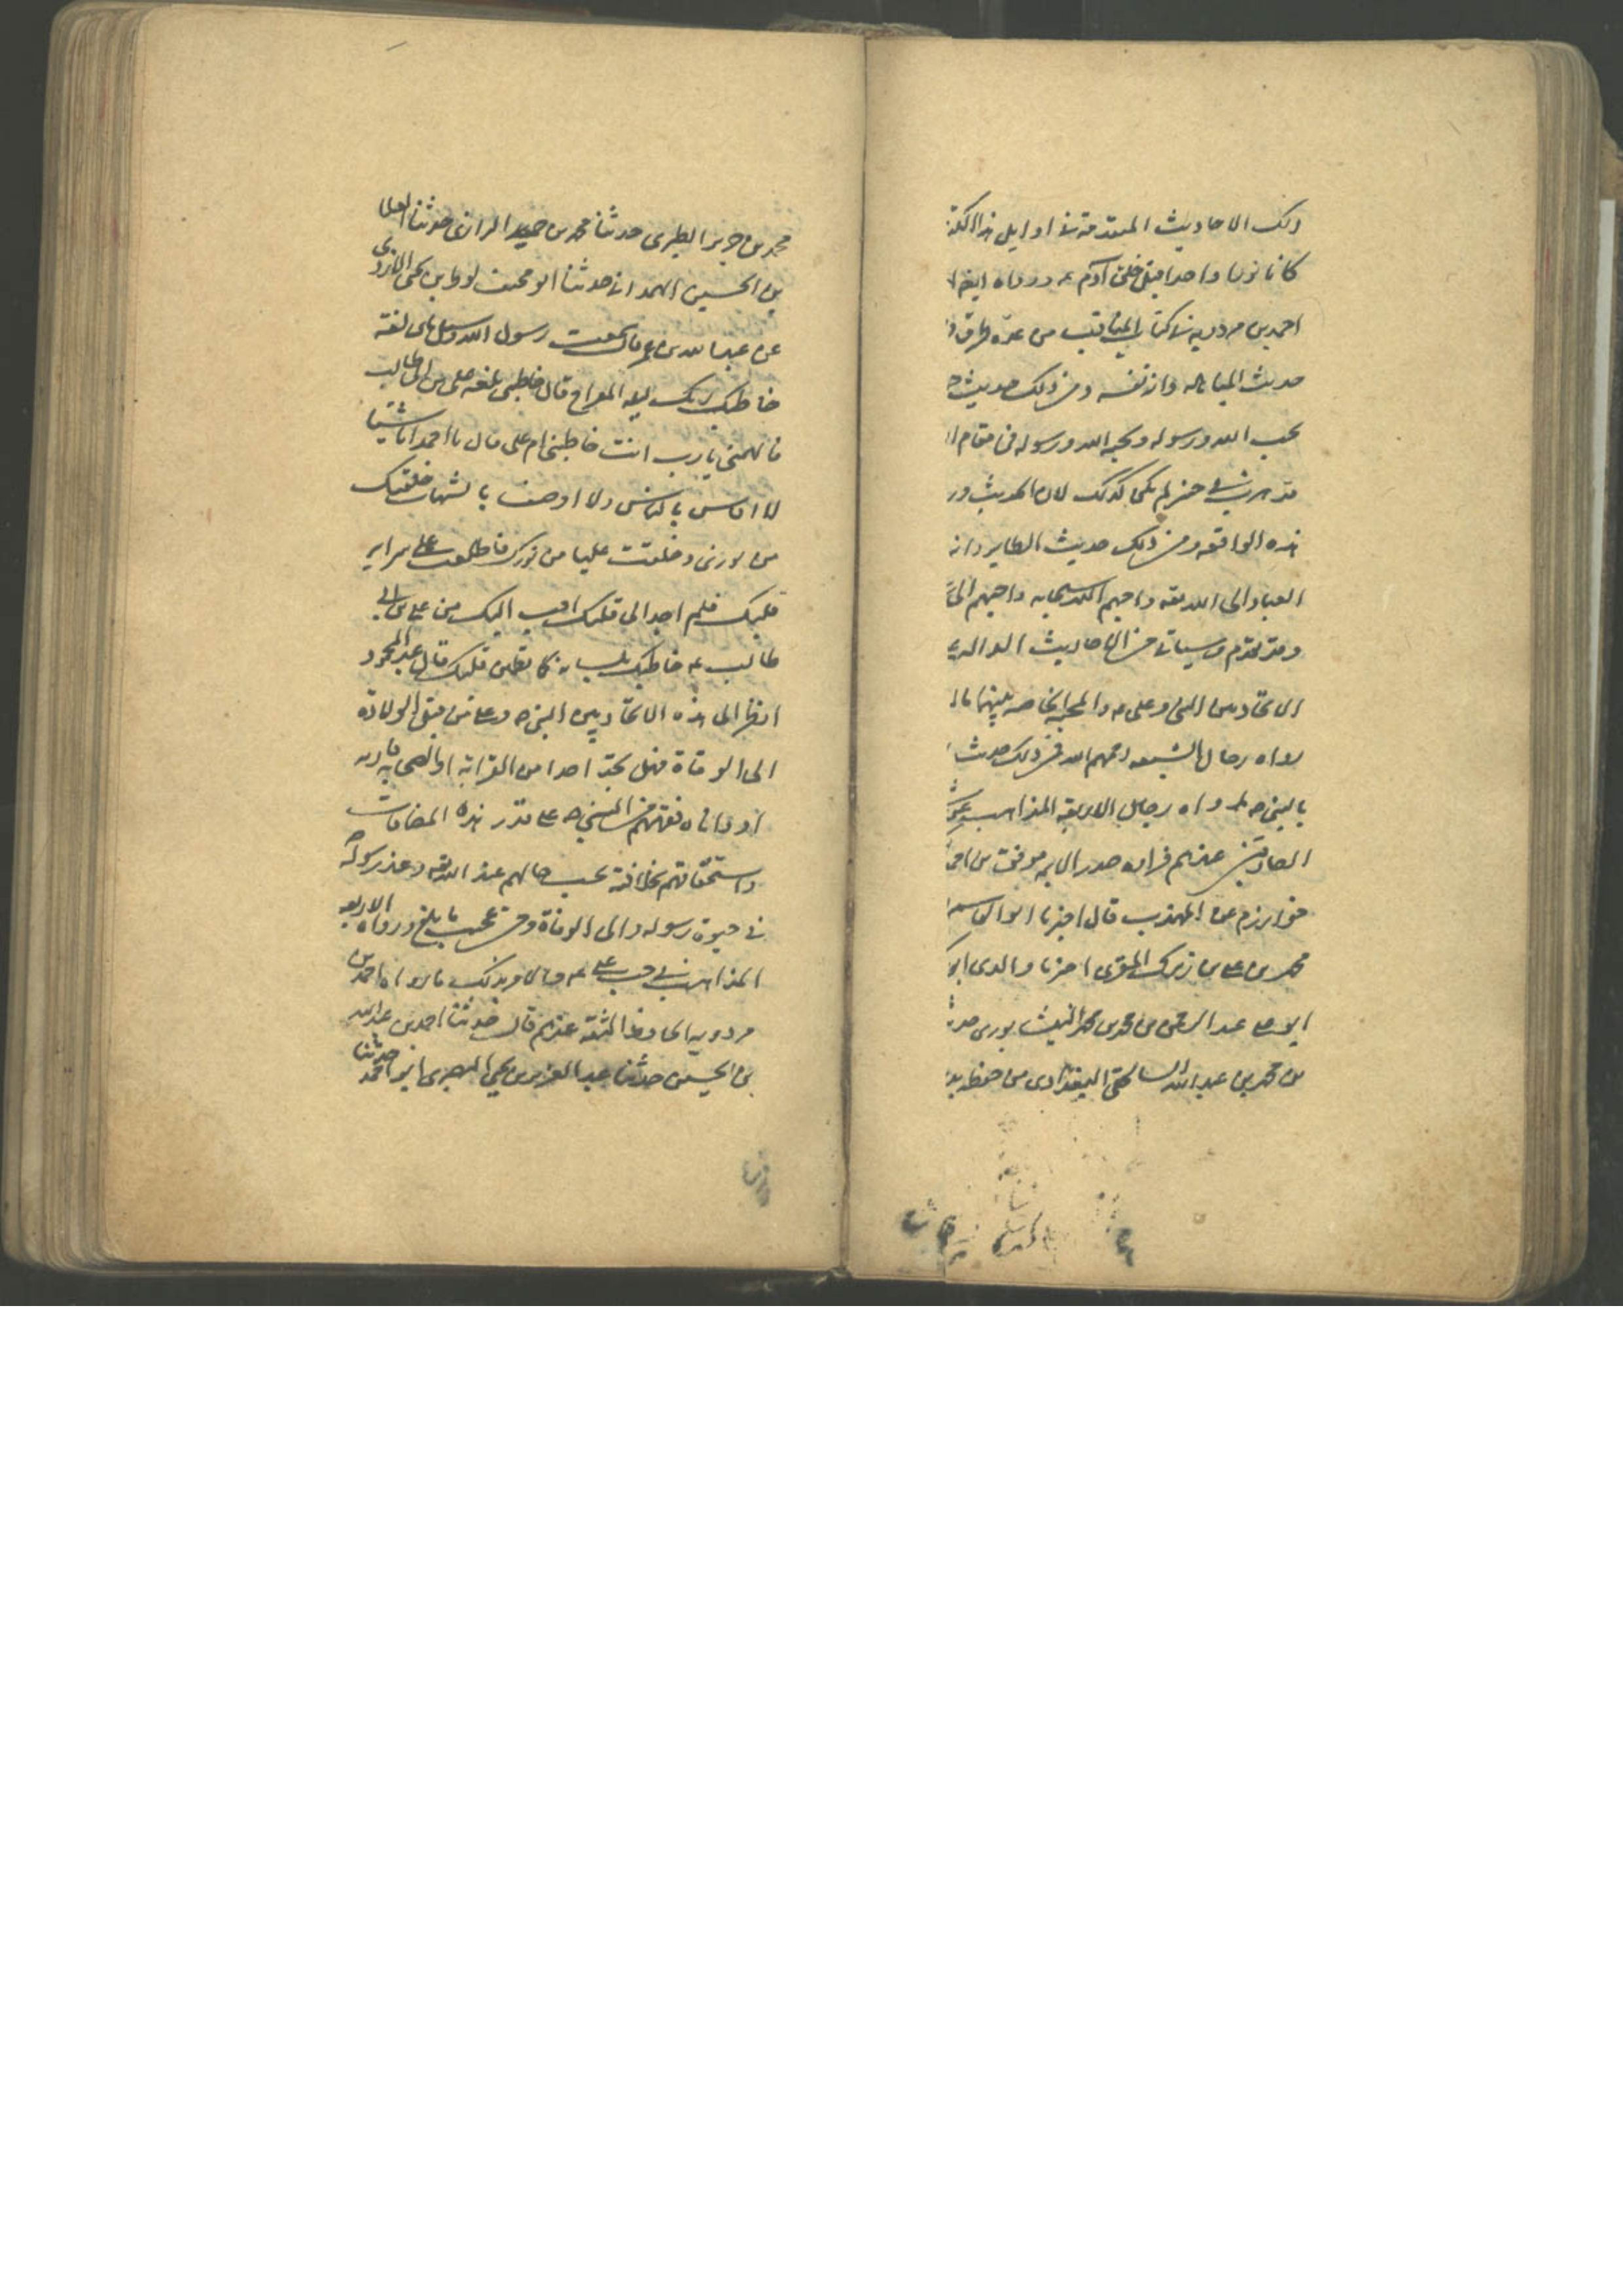 ذلك الاحاديث المتقدمة في اوايل هذا الكتا
كانا نورا واحدا قبل خلق آدم ع ورواه ايضا
احمد بن مردويه في كتاب المناقب من عدة طرق و
حديث المباهلة وانه نفسه ومن ذلك حديث
يحب الله ورسوله ويحبه الله ورسوله في مقام
لم يكن كذلك لان الحديث ور
هذه الواقعة ومن ذلك حديث الطاير وانه
العباد الى الله تعه واحبهم الله سبحانه واحبهم الى
وقد تقدم وسياتي من الاحاديث الدالة
الاتحاد بين النبي وعلي ع والمحبة الخاصة بينهما ما
رواه رجال الشيعة رحمهم الله فمن ذلك حديث
بالنبي ص ما رواه رجال الاربعة المذاهب
الصادقين عندهم فرواه صدر الايمه موفق بن احمد
خوارزم عن المهذب قال اخبرنا ابو القاسم
محمد بن علي بن المقري اخبرنا والدي ابو
ابو علي عبد الرحمن بن محمد بن محمد النيشابوري حدثنا
بن محمد بن عبد الله البغدادي من حفظه
محمد بن جرير الطبري حدثنا محمد بن حميد الرازي حدثنا العلا
بن الحسين الهمداني حدثنا ابو مخنف لوط بن يحيى الازدي
عن عبد الله بن عمر قال سمعت رسول الله وسئل باي لغة
خاطبك ربك ليلة المعراج قال خاطبني بلغة علي بن ابي طالب
فالهمني يا رب انت خاطبتني ام علي فقال يا احمد انا شيئ
لا اقاس بالناس ولا اوصف بالشبهات خلقتك
من نوري وخلقت عليا من نورك فاطلعت على سراير
قلبك فلم اجد الى قلبك احب اليك من علي بن ابي
طالب ع خاطبتك بلسانه كيما يطمئن قلبك قال عبد المحمود
انظر الى هذه الاتحاد بين النبي ص وعلي من قبل الولادة
الى الوفاة فهل تجد احدا من القرابة او الصحابة قاربه
او داناه من النبي ص على قدر هذه المضافات
واستحقاقهم بخلافته بحسب حالهم عند الله تعه وعند رسوله
في حيوة رسوله والى الوفاة ومن عجيب ما بلغ ورواه الاربعة
المذاهب في حب علي ع ما رواه احمد بن
مردويه الحافظ الثقة عندهم قال حدثنا احمد بن عبد الله
بن الحسين حدثنا عبد العزيز بن يحيى البصري ابو احمد حدثنا